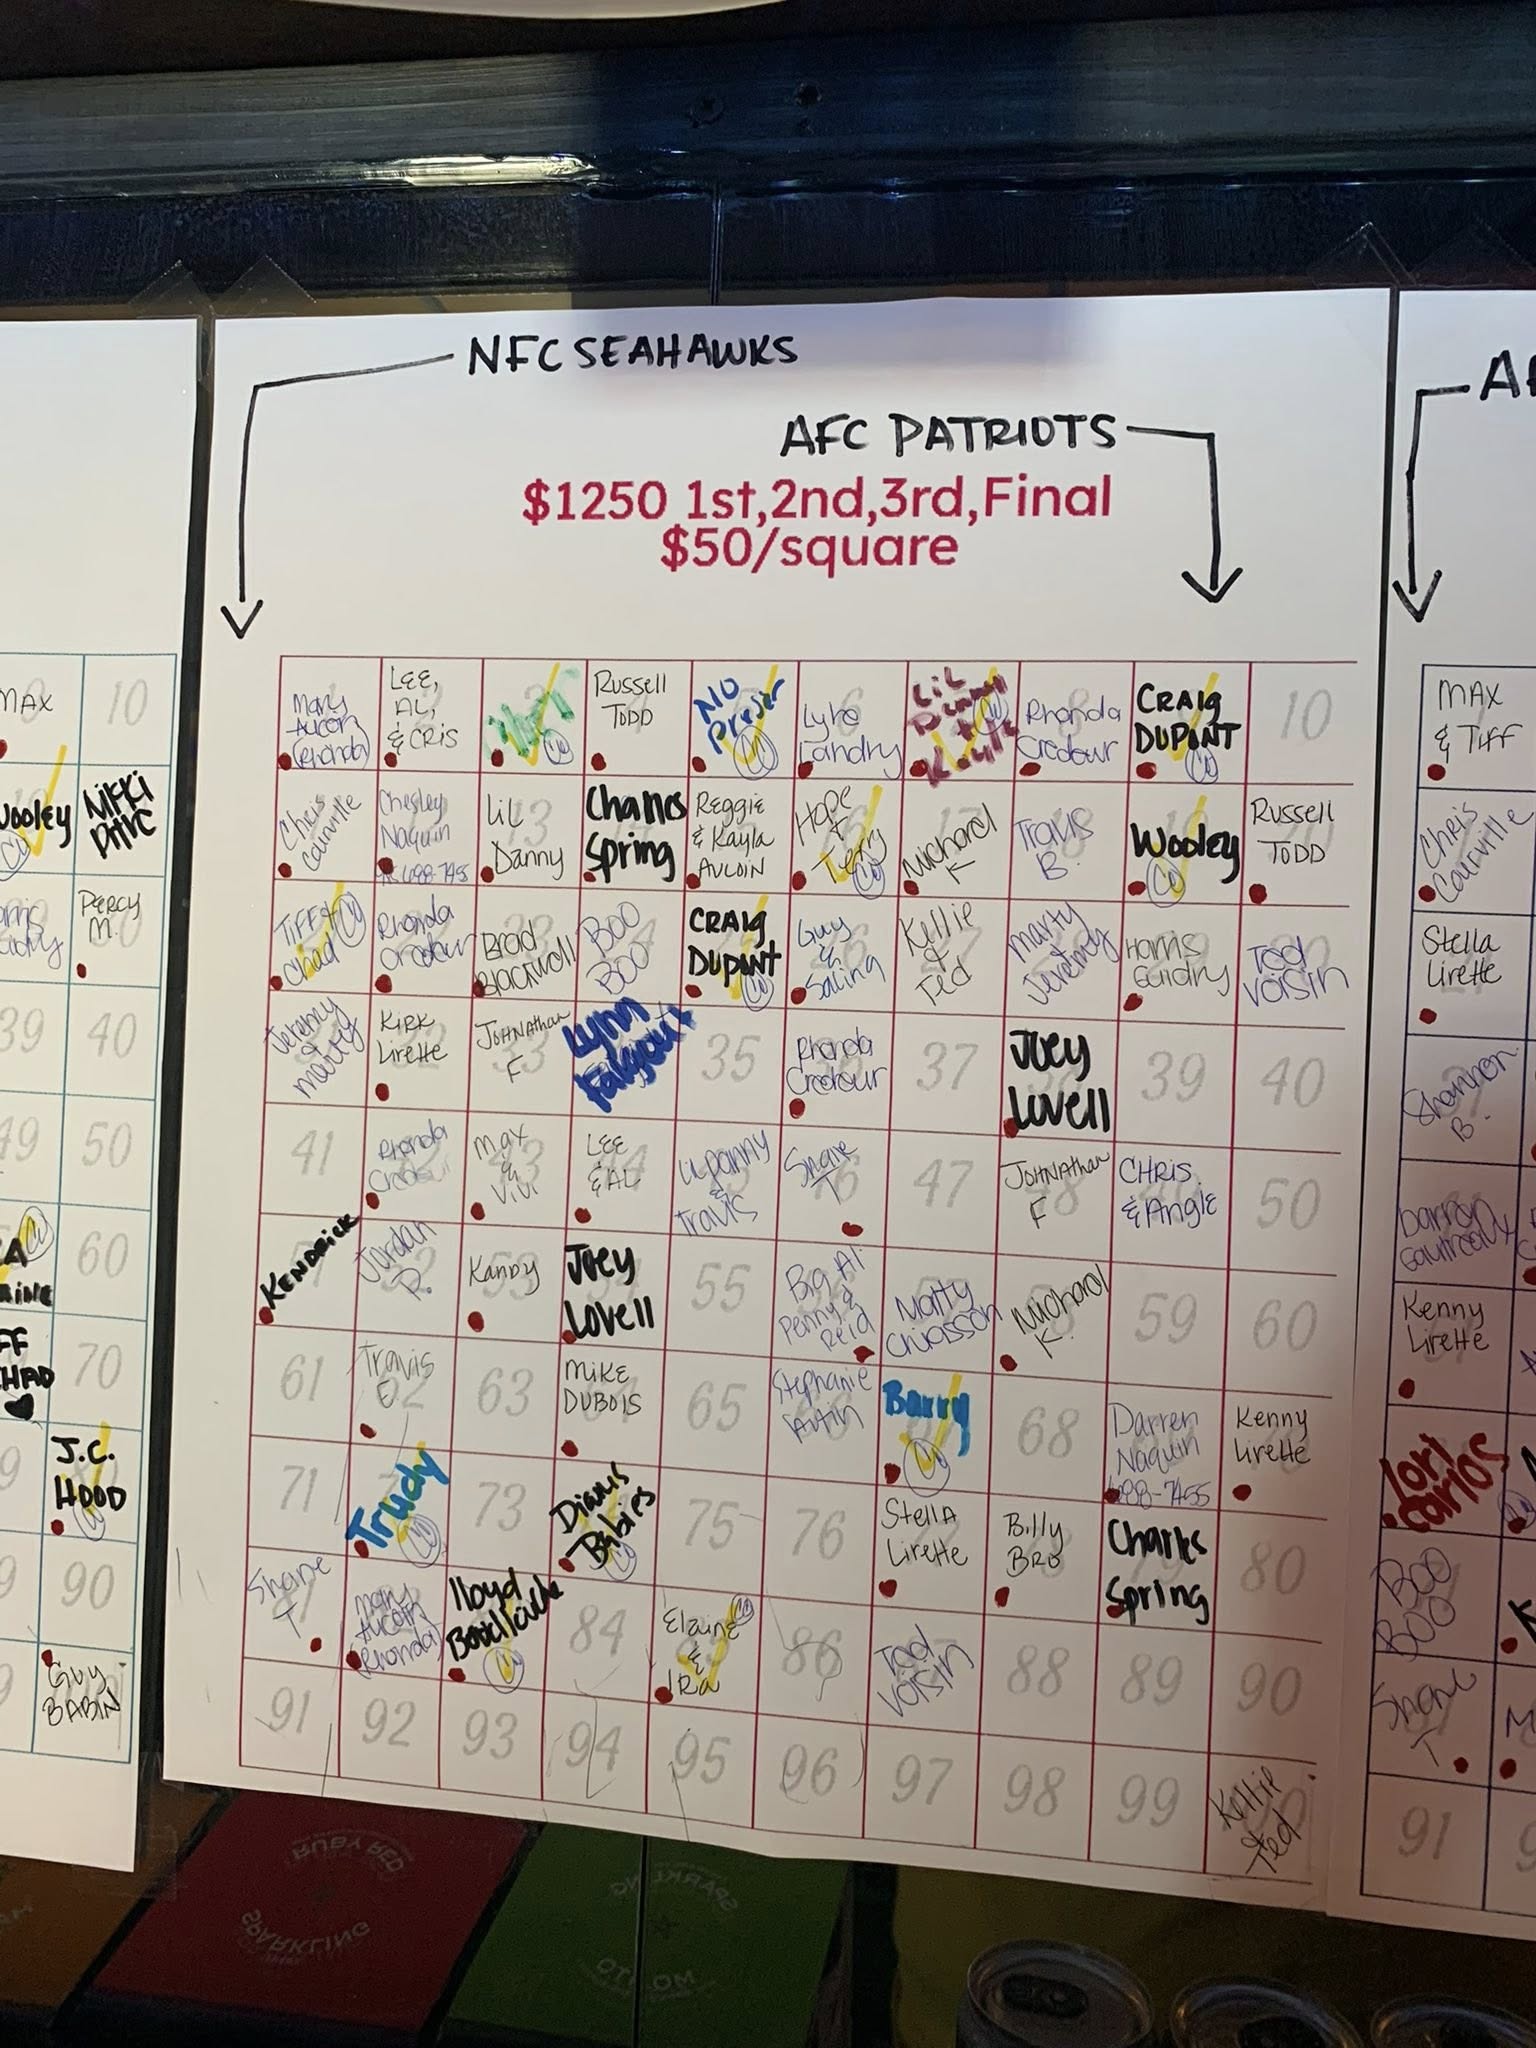 NFC SEAHAWKS
AFC PATRIOTS
$1250 1st,2nd,3rd,Final
$50/square
Mary
Aucoin
(Rhonda)
LEE,
AL,
& CRIS
Russell
TODD
5
NO
6
Lyle
Landry
Lil
Danny
&
Kyle
8
Rhonda
Crodour
CRAIG
DUPONT
10
Chris
Courville
Chesley
Naquin
Lil
Danny
13
Charles
Spring
REGGIE
& Kayla
AUCOIN
Hope
&
Terry
Michael
K
Travis
B.
18
Wooley
Russell
TODD
TIFF &
Chad
Rhonda
Crodour
Brad
Blackwell
BOO
BOO
CRAIG
DUPONT
Guy
&
Saling
26
Kellie
&
Ted
Marty
Jeremy
Harris
Guidry
Tod
Voisin
Jeremy
&
Matty
Kirk
Lirette
32
JOHNATHAN
F
33
Lynn
Falgout
35
Rhonda
Crodour
37
Joey
Lovell
39
40
41
Rhonda
Max
&
Vivi
LEE
& AL
Lil Danny
&
Travis
Shane
T
46
47
JOHNATHAN
F
48
CHRIS
& Angie
50
KENDRICK
Jordan
P.
Kandy
53
Joey
Lovell
55
Big Al
Penny &
Reid
Matty
Chiasson
Michael
K.
59
60
61
Travis
62
63
MIKE
DUBOIS
65
Stephanie
Autin
Barry
68
Darren
Naquin
698-7455
Kenny
Lirette
71
Trudy
73
Dianis
Babies
75
76
Stella
Lirette
Billy
BRO
Charles
Spring
80
Shane
T
Mary
Aucoin
(Rhonda)
lloyd
84
Elaine
&
Ira
86
Tod
Voisin
88
89
90
91
92
93
94
95
96
97
98
99
Kellie
& Ted
MAX
10
Wooley
NIKKI
PERCY
M.
39
40
49
50
60
70
J.C.
HOOD
90
GUY
BABIN
MAX
& TIFF
Chris
Courville
Stella
Lirette
Shannon
B.
Darren
Kenny
Lirette
Lori
Carlos
BOO
BOO
Shane
T
91
RUBY RED
SPARKLING
SPARKLING
MOJITO